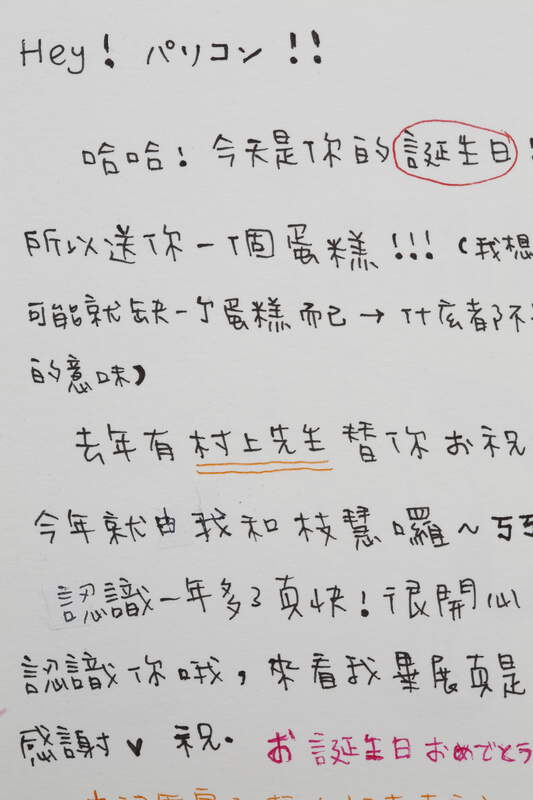 Hey! パリコン!!
哈哈!今天是你的誕生日!
所以送你一個蛋糕!!!(我想
可能就缺一个蛋糕而已→什庅都不
的意味)
去年有村上先生替你お祝
今年就由我和枝慧囉~ㄎㄎ
認識一年多了真快!很開心
認識你哦,來看我畢展真是
感謝♥祝.お誕生日おめでとう